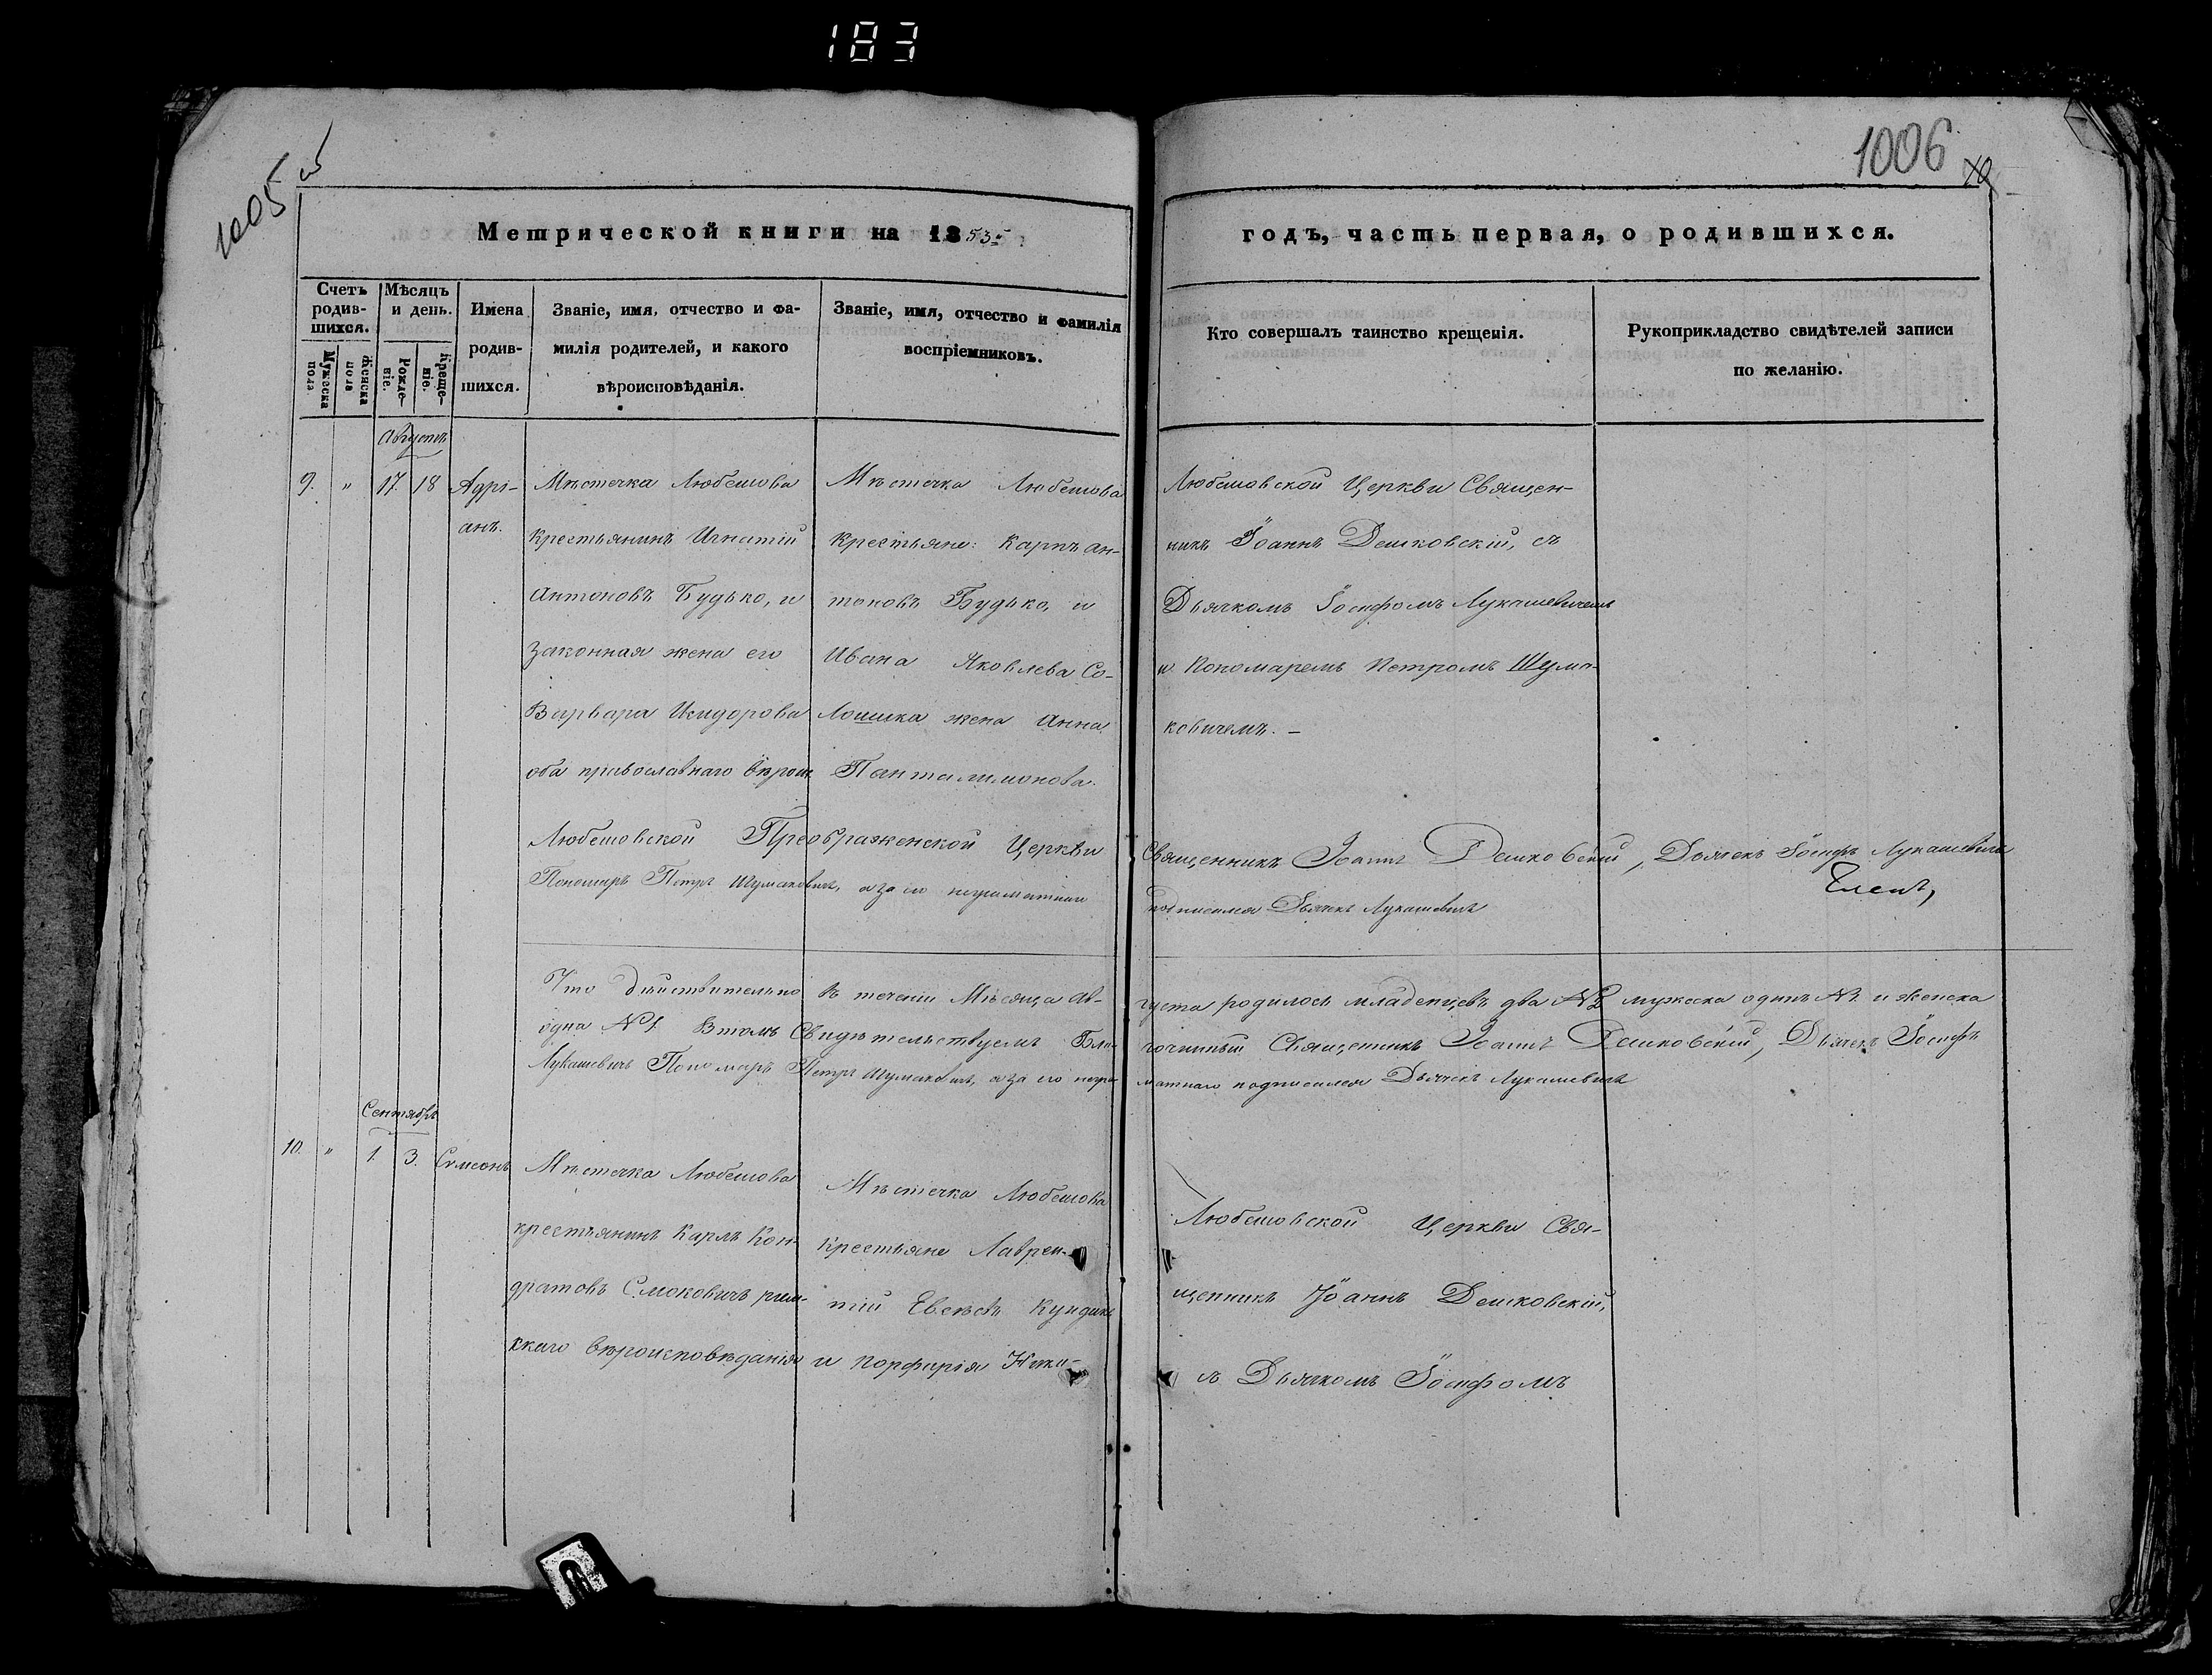 183
1005
1006
Метрической книги на 1853
годъ, часть первая, о родившихся.
Счетъ родив-шихся.
Мужеска пола
Женска пола
Мѣсяцъ и день.
Рожде-ніе.
Креще-ніе.
Имена родив-шихся.
Званіе, имя, отчество и фа-
милія родителей, и какого
вѣроисповѣданія.
Званіе, имя, отчество и фамилія
воспріемниковъ.
Кто совершалъ таинство крещенія.
Рукоприкладство свидѣтелей записи
по желанію.
Августъ
9. " 17. 18 Адрі-
анъ.
Мѣстечка Любешова
крестьянинъ Игнатій
Антоновъ Будько, и
законная жена его
Варвара Исидорова
оба православнаго вѣроис.
Мѣстечка Любешова
крестьяне: Карпъ Ан-
тоновъ Будько, и
Ивана Яковлева Со-
лошика жена Анна
Панталимонова.
Любешовской Церкви Священ-
никъ Іоаннъ Демковскій, съ
Дьячкомъ Іосифомъ Лукашевичемъ
и Пономаремъ Петромъ Шума-
ковичемъ. –
Любешовской Преображенской Церкви Священникъ Іоаннъ Демковскій, Дьячекъ Іосифъ Лукашевичъ
Пономарь Петръ Шумаковичъ, а за его неграматнаго подписался Дьячекъ Лукашевичъ
Что дѣйствительно въ теченіи Мѣсяца Ав-густа родилось младенцевъ два №2 мужеска одинъ №1. и женска
одна №1. Втомъ Свидѣтельствуемъ Благочинный Священникъ Іоаннъ Демковскій, Дьячекъ Іосифъ
Лукашевичъ Пономарь Петръ Шумаковичъ, а за его неграматнаго подписался Дьячекъ Лукашевичъ
Сентябрь
10. " 1. 3. Симеонъ
Мѣстечка Любешова
крестьянинъ Карлъ Кон-
дратовъ Смоковичъ рим-
скаго вѣроисповѣданія
Мѣстечка Любешова
крестьяне Лаврен-
тій Евсѣевъ
и Порфирія
Любешовской Церкви Свя-
щенникъ Іоаннъ Демковскій,
съ Дьячкомъ Іосифомъ